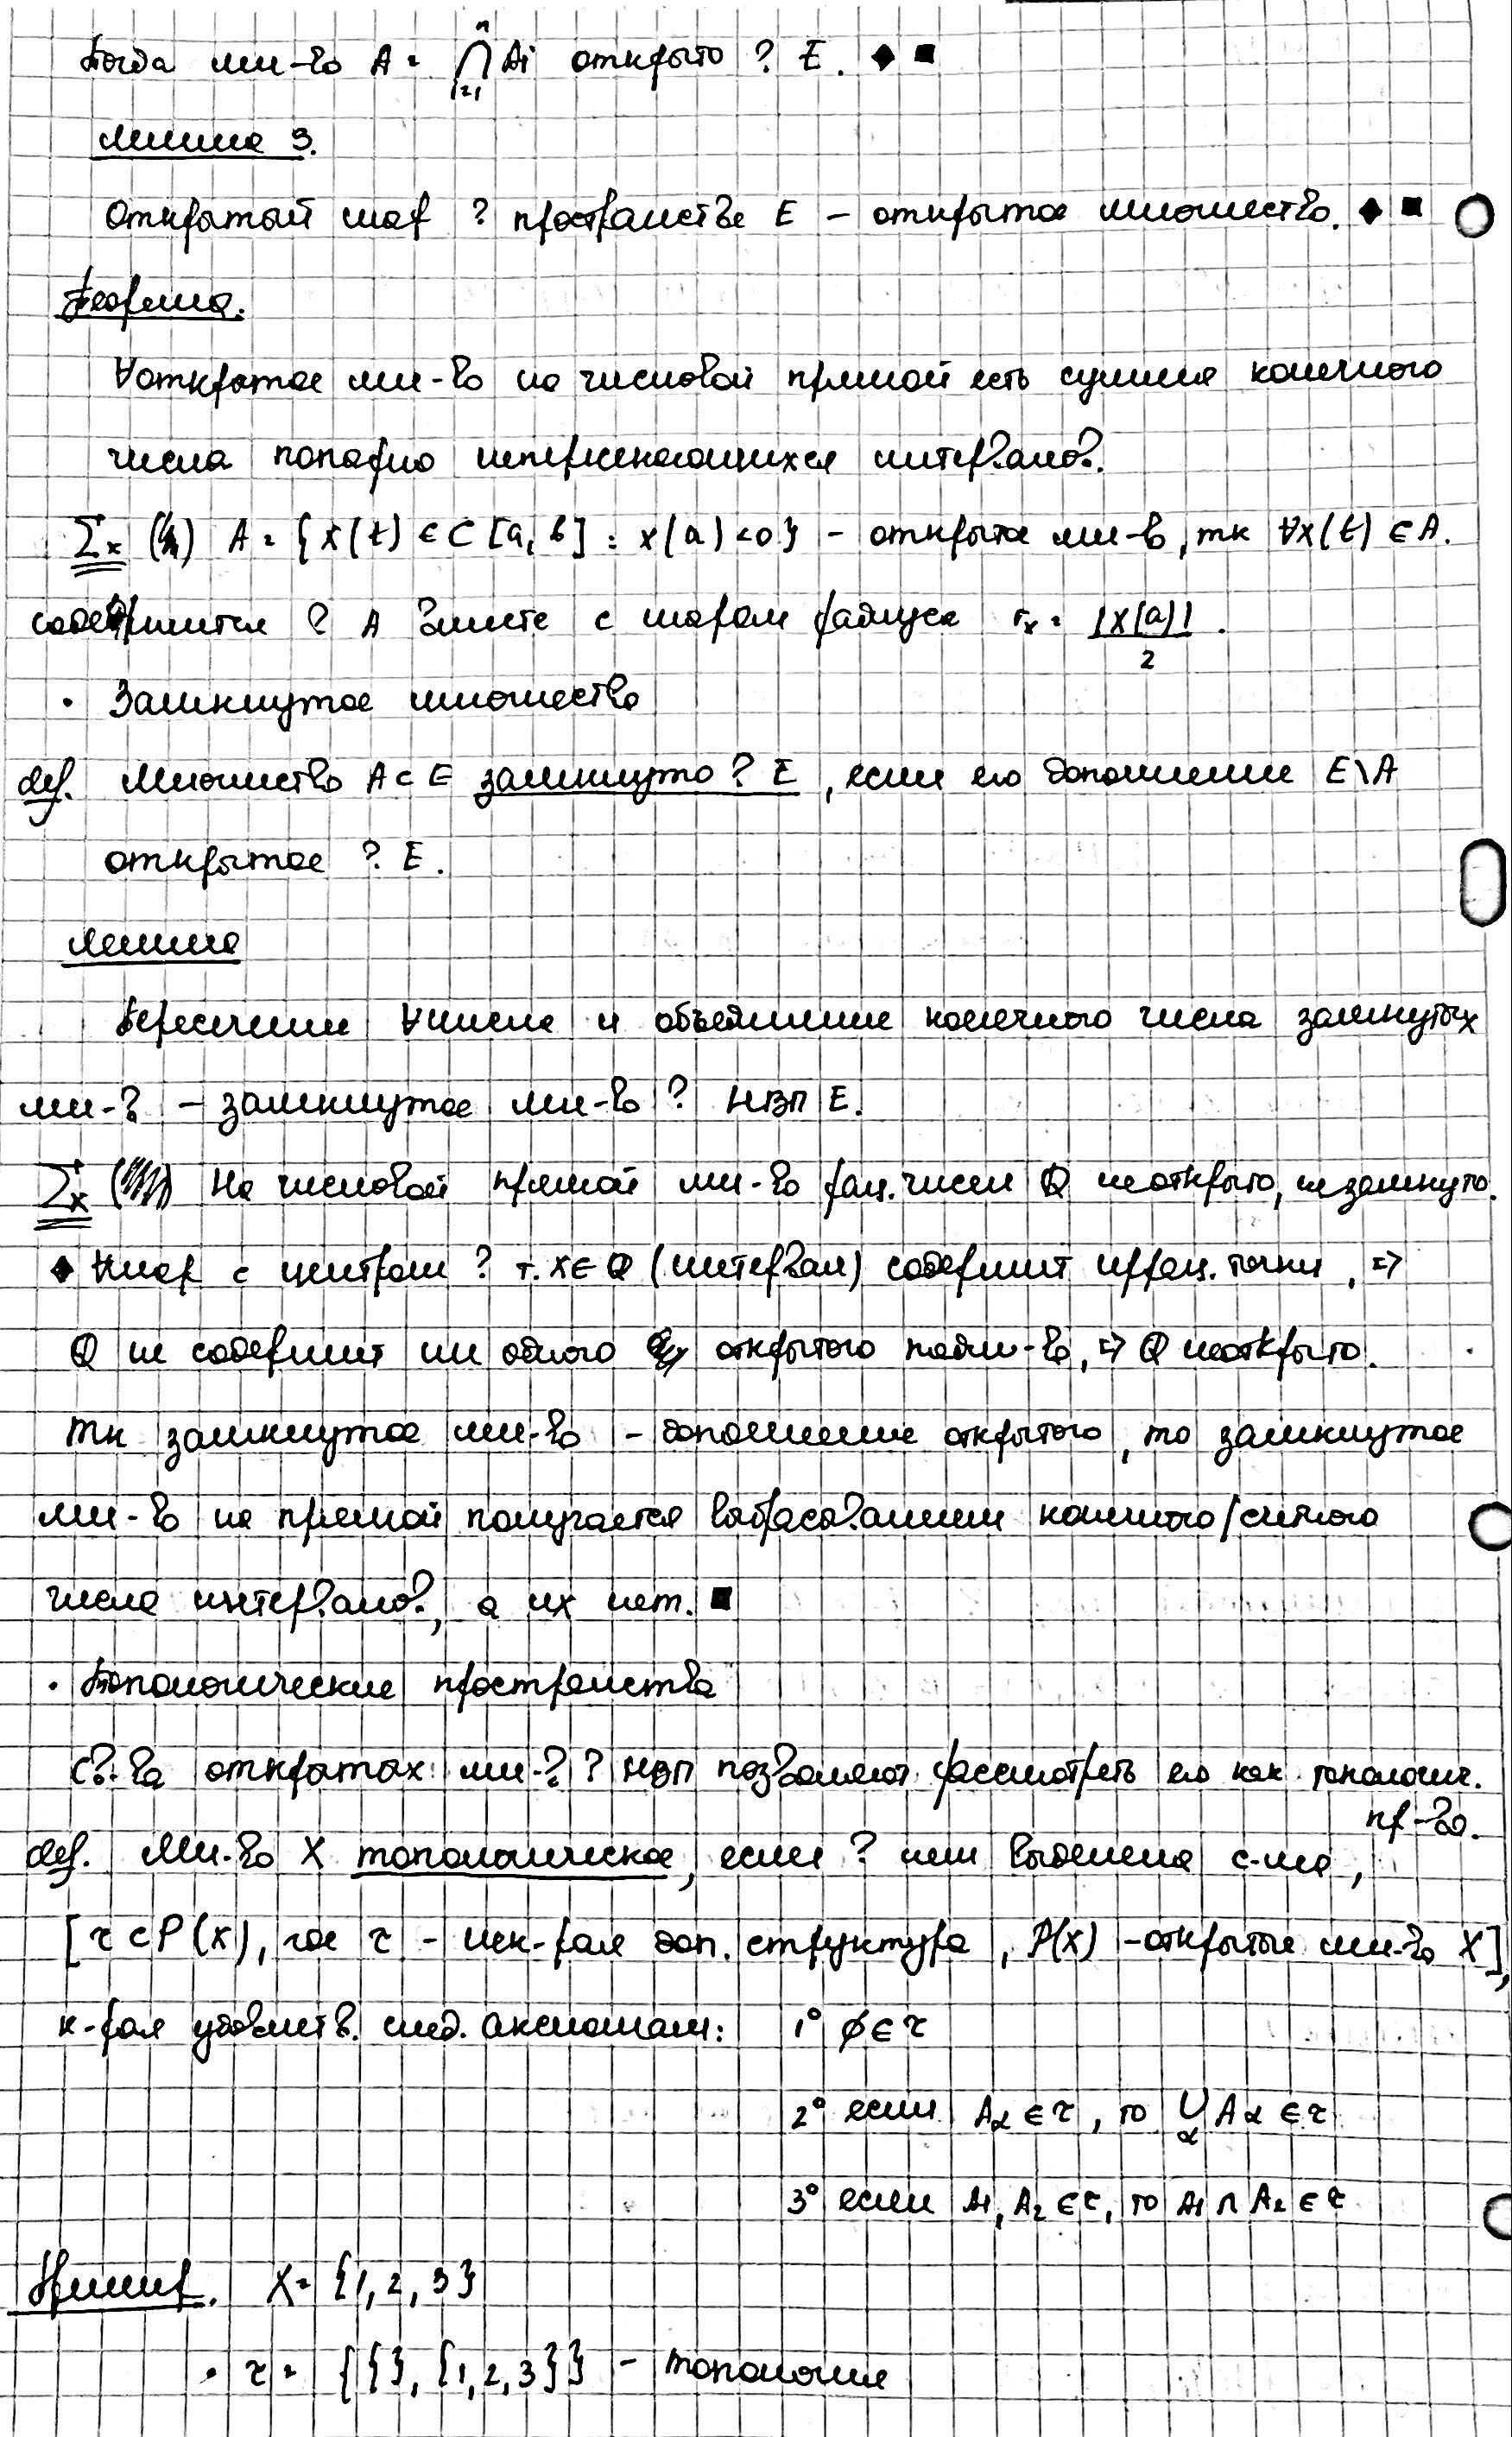 Тогда мн-во A = ⋂ Ai открыто в E. ◆ ■
n
i=1
Лемма 3.
Открытый шар в пространстве E – открытое множество. ◆ ■
Теорема.
∀открытое мн-во на числовой прямой есть сумма конечного
числа попарно непересекающихся интервалов.
Ex A = {x(t) ∈ C[a, b] : x(a) < 0} – открытое мн-во, тк ∀x(t) ∈ A.
содержится в A вместе с шаром радиуса rx = |x(a)| / 2 .
• Замкнутое множество
def. Множество A ⊂ E замкнуто в E, если его дополнение E\A
открытое в E.
Лемма
Пересечение ∀числа и объединение конечного числа замкнутых
мн-в – замкнутое мн-во в НВП E.
Ex На числовой прямой мн-во рац. чисел Q неоткрыто, незамкнуто.
◆ ∀шар с центром в т. x ∈ Q (интервал) содержит иррац. точки, ⇒
Q не содержит ни одного открытого подмн-во, ⇒ Q неоткрыто.
Тк замкнутое мн-во – дополнение открытого, то замкнутое
мн-во на прямой получается выбрасыванием конечного/счетного
числа интервалов, а их нет. ■
• Топологические пространства
Св-ва открытых мн-в в НВП позволяют рассмотреть его как топологич.
пр-во.
def. Мн-во X топологическое, если в нем выделена с-ма,
[τ ⊂ P(X), где τ – нек-рая доп. структура, P(X) – открытые мн-во X],
к-рая удовлетв. след. аксиомам: 1° ∅ ∈ τ
2° если Aα ∈ τ, то ⋃ Aα ∈ τ
α
3° если A1, A2 ∈ τ, то A1 ∩ A2 ∈ τ
Пример. X = {1, 2, 3}
• τ = {{}, {1, 2, 3}} – топология